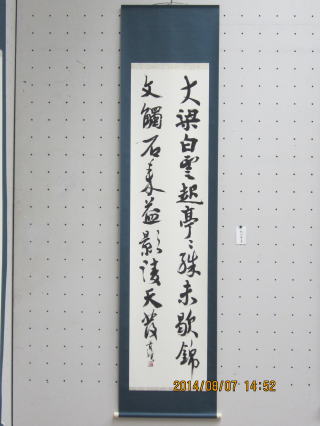 大梁白雲起亭々殊未歇錦
文觸石来蓋影陵天發
2014/09/07 14:52